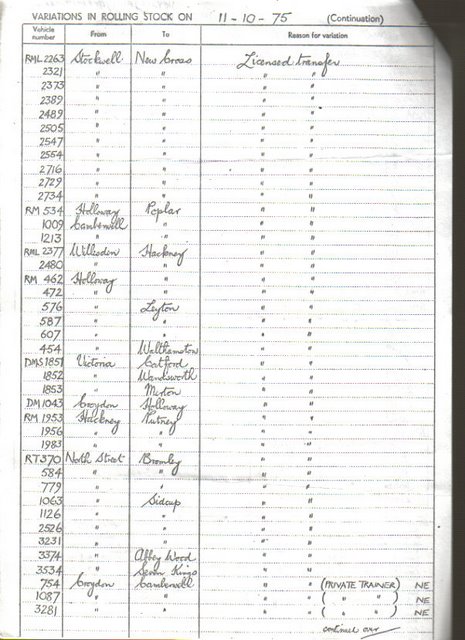 VARIATIONS IN ROLLING STOCK ON 11-10-75 (Continuation)
Vehicle number From To Reason for variation
RML 2263 Stockwell New Cross Licensed transfer
2321 " " " "
2373 " " " "
2389 " " " "
2489 " " " "
2505 " " " "
2547 " " " "
2554 " " " "
2716 " " " "
2729 " " " "
2734 " " " "
RM 534 Holloway Poplar " "
1009 Camberwell " " "
1213 " " " "
RML 2377 Willesden Hackney " "
2480 " " " "
RM 462 Holloway " " "
472 " " " "
576 " Leyton " "
587 " " " "
607 " " " "
454 " Walthamstow " "
DMS 1851 Victoria Catford " "
1852 " Wandsworth " "
1853 " Merton " "
DM 1043 Croydon Holloway " "
RM 1953 Hackney Putney " "
1956 " " " "
1983 " " " "
RT 370 North Street Bromley " "
584 " " " "
779 " " " "
1063 " Sidcup " "
1126 " " " "
2526 " " " "
3231 " " " "
3374 " Abbey Wood " "
3534 " Seven Kings " "
754 Croydon Camberwell " " (PRIVATE TRAINER) NE
1087 " " " " ( " " ) NE
3281 " " " " ( " " ) NE
continued over